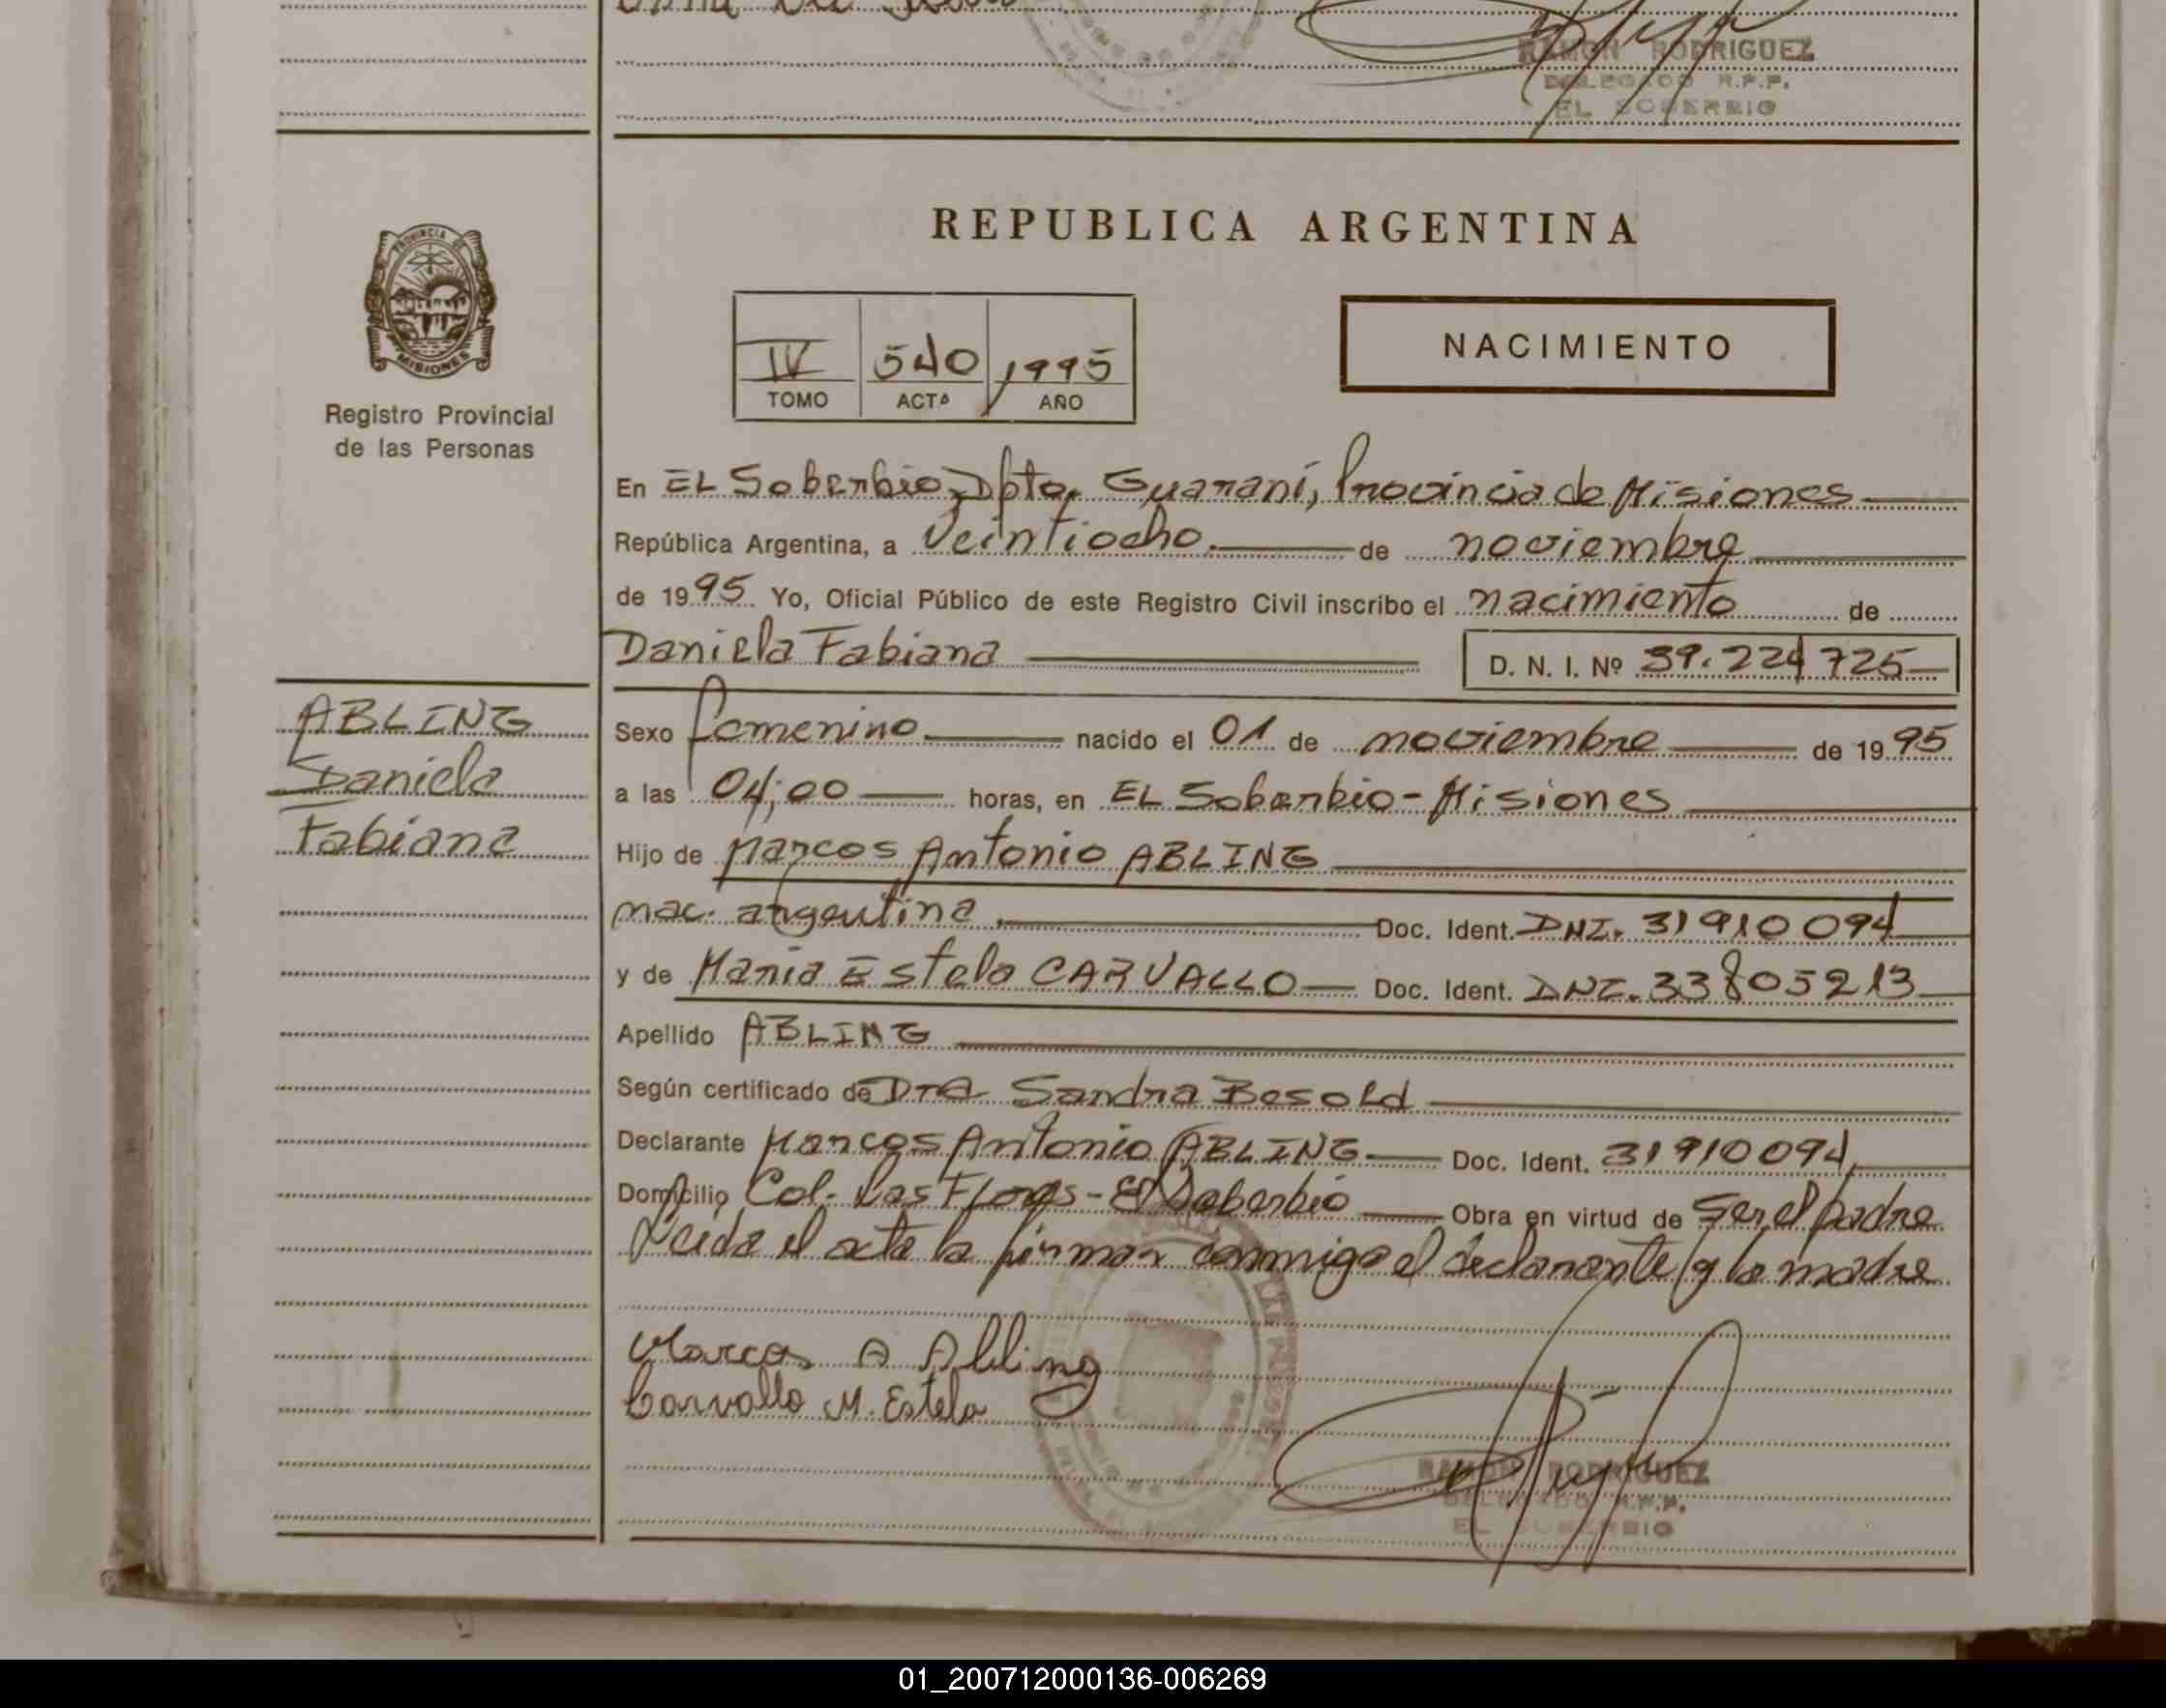 RAMON RODRIGUEZ
DELEGADO R.P.P.
EL SOBERBIO
PROVINCIA DE
MISIONES
Registro Provincial
de las Personas
REPUBLICA ARGENTINA
IV 540 1995
TOMO ACTA AÑO
NACIMIENTO
En EL Soberbio, Dpto. Guaraní, Provincia de Misiones
República Argentina, a Veintiocho. de noviembre
de 1995 Yo, Oficial Público de este Registro Civil inscribo el nacimiento de
Daniela Fabiana D. N. I. Nº 39.224725
ABLING
Daniela
Fabiana
Sexo femenino nacido el 01 de noviembre de 1995
a las 04;00 horas, en EL Soberbio - Misiones
Hijo de Marcos Antonio ABLING
nac. argentina. Doc. Ident. DNI. 31910094
y de Maria Estela CARVALLO Doc. Ident. DNI. 33805213
Apellido ABLING
Según certificado de Dra Sandra Besold
Declarante Marcos Antonio ABLING Doc. Ident. 31910094
Domicilio Col. Las Flores - El Soberbio Obra en virtud de ser el padre
Leida el acta la firman conmigo el declarante y la madre
Marcos A Abling
Carvallo M. Estela
RAMON RODRIGUEZ
DELEGADO R.P.P.
EL SOBERBIO
01_200712000136-006269